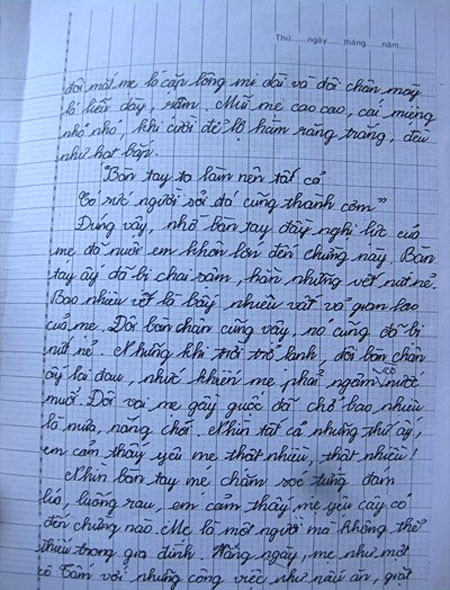 Thứ......ngày......tháng......năm......
đôi mắt mẹ là cặp lông mi dài và đôi chân mày
lá liễu dày, rậm. Mũi mẹ cao cao, cái miệng
nhỏ nhỏ, khi cười để lộ hàm răng trắng, đều
như hạt bắp.
"Bàn tay ta làm nên tất cả
Có sức người sỏi đá cũng thành cơm"
Đúng vậy, nhờ bàn tay đầy nghị lực của
mẹ đã nuôi em khôn lớn đến chừng này. Bàn
tay ấy đã bị chai sạm, hằn những vết nứt nẻ.
Bao nhiêu vết là bấy nhiêu vất vả gian lao
của mẹ. Đôi bàn chân cũng vậy, nó cũng đã bị
nứt nẻ. Những khi trời trở lạnh, đôi bàn chân
ấy lại đau, nhức khiến mẹ phải ngâm nước
muối. Đôi vai mẹ gầy guộc đã chở bao nhiêu
là mưa, nắng chói. Nhìn tất cả những thứ ấy,
em cảm thấy yêu mẹ thật nhiều, thật nhiều!
Nhìn bàn tay mẹ chăm sóc từng đám
lúa, luống rau, em cảm thấy mẹ yêu cây cỏ
đến chừng nào. Mẹ là một người mà không thể
thiếu trong gia đình. Hằng ngày, mẹ như một
cô Tấm với những công việc như nấu ăn, giặt